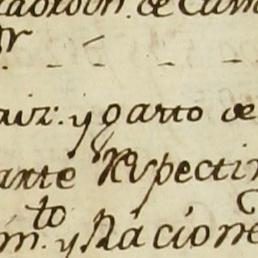 de Cam
aiz: y garto de
ante Respectiv
m.to y Racione